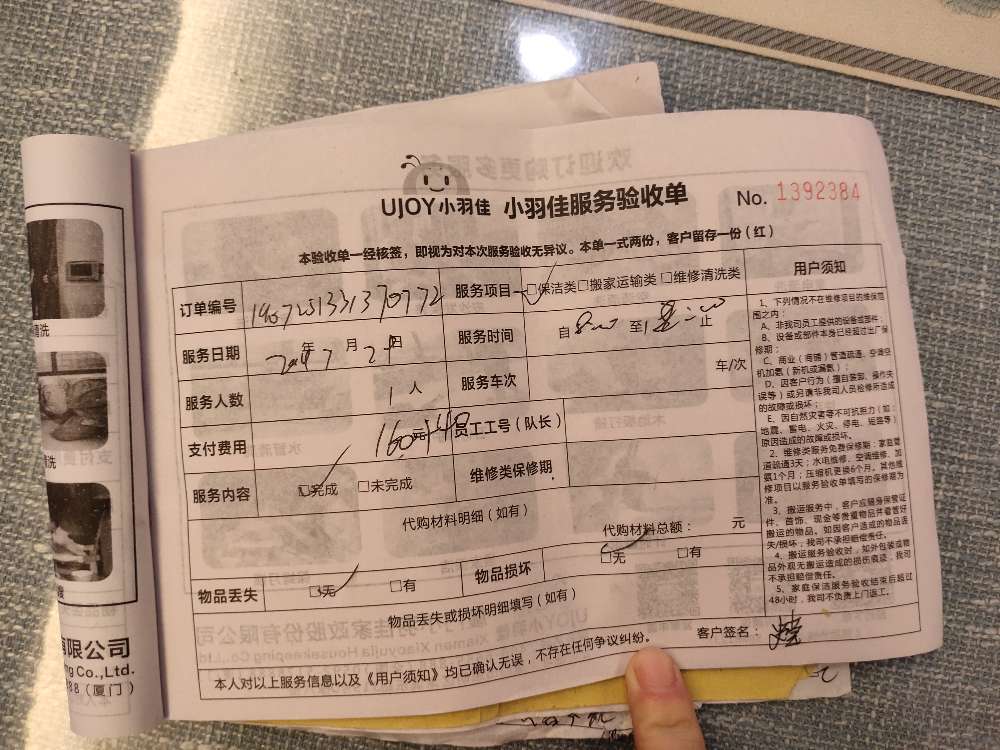 UJOY小羽佳 小羽佳服务验收单 No. 1392384
本验收单一经核签，即视为对本次服务验收无异议。本单一式两份，客户留存一份（红）
订单编号
服务项目 □保洁类□搬家运输类□维修清洗类
服务日期 年7月2 日
服务时间 自8:00 至 止
服务人数 1人
服务车次 车/次
支付费用 160元+40
员工工号（队长）
服务内容 □完成 □未完成
维修类保修期
代购材料明细（如有）
代购材料总额： 元
物品丢失 □无 □有
物品损坏 □无 □有
物品丢失或损坏明细填写（如有）
客户签名：
本人对以上服务信息以及《用户须知》均已确认无误，不存在任何争议纠纷。
用户须知
1、下列情况不在维修项目的维保范
围之内：
A、非我司员工提供的设备或部件；
B、设备或部件本身已经超过出厂保
修期；
C、商业（商铺）管道疏通、空调空
机加氨（新机或漏氨）；
D、因客户行为（擅自装卸、操作失
误等）或另请非我司人员检修所造成
的故障或损坏；
E、因自然灾害等不可抗拒力（如：
地震、雷电、火灾、停电、短路等）
原因造成的故障或损坏。
2、维修类服务免费保修期：家庭管
道疏通3天；水电维修、空调维修、加
氨1个月；压缩机更换6个月。其他维
修项目以服务验收单填写的保修期为
准。
3、搬运服务中，客户应随身保管证
件、首饰、现金等贵重物品并看管好
搬运的物品。如因客户造成的物品丢
失/损坏，我司不承担赔偿责任。
4、搬运服务验收时，如外包装或物
品外观无搬运造成的损伤痕迹，我司
不承担赔偿责任。
5、家庭保洁服务验收结束后超过
48小时，我司不负责上门返工。
清洗
洗
有限公司
ng Co.,Ltd.
88（厦门）